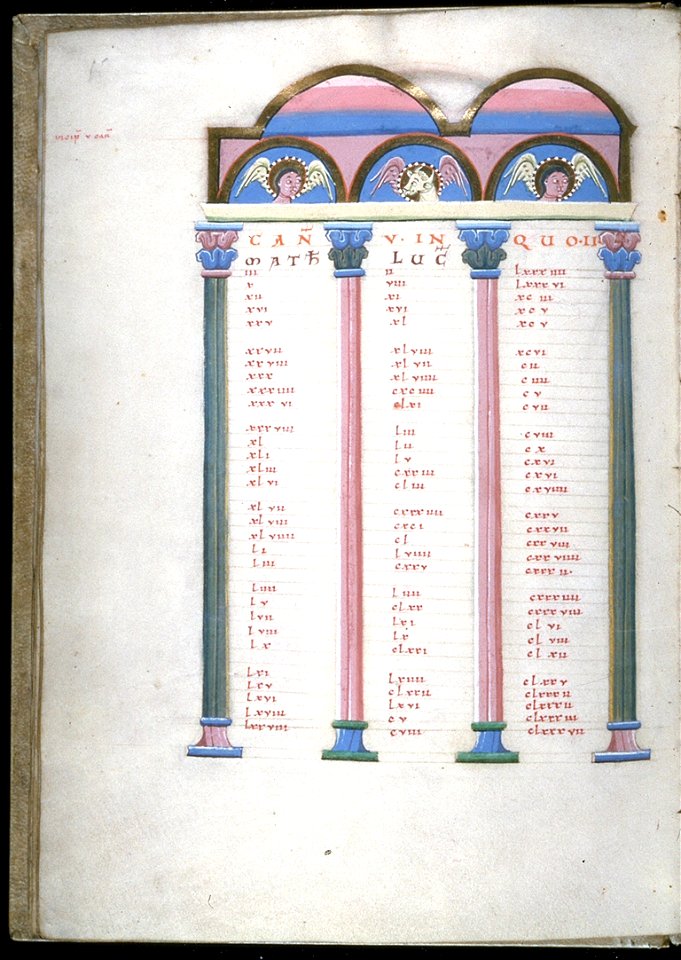 incip̃ v cañ
CAÑ V·IN QUO·II
MATH̃ LUC̃
iii ii lxxxiiii
x viiii lxxxvi
xii xi xciii
xvi xvi xcv
xxv xl xcv
xxvii xlviii xcvi
xxviii xlvii cii
xxx xlviiii ciiii
xxxiiii cxciiii cv
xxxvi clxi cvii
xxxviii liii cviii
xl lii cx
xli lv cxvi
xliii cxxiii cxvi
xlvi cliii cxviiii
xlvii cxxxiiii cxxv
xlviii cxci cxxvii
xlviiii cl cxxviii
li lviiii cxxviiii
liii cxxv cxxxii·
liiii liiii cxxxiiii
lv clxx cxxxviii
lvii lxi clvi
lviii lx clviii
lx clxxi clxii
lxi lxiiii clxxv
lxv clxxii clxxxii
lxvi lxvi clxxxii
lxviii cv clxxxiii
lxxviii cviii clxxxvii